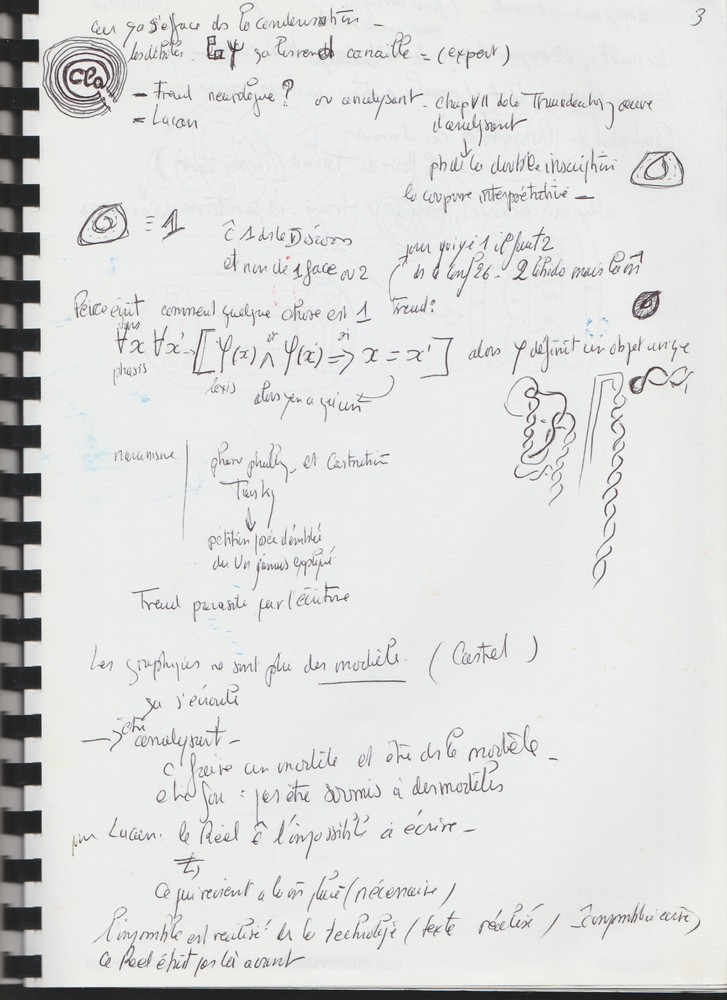 3
car ça s'efface ds la condensation –
les débiles. La ψ ça les rend canaille = (expert)
Cla
– Freud neurologue ? ou analysant. chap VII de la Traumdeutung œuvre
= Lacan d'analysant
↓
pb de la double inscription
la coupure interprétative –
≡ 1
c 1 ds le Discours
et non de 1 face ou 2
pour qu'y ait 1 il faut 2
ds la conf 26 – 2 libido mais
Freud ?
Peirce écrit comment quelque chose est 1
∀x ∀x' → [φ(x) ∧ φ(x') ⇒ x = x'] alors φ définit un objet unique
phasis
lexis alors y en a qu'un
narcissisme
phase phallique et Castration
↓
pétition posée d'emblée
du Un jamais expliqué
Freud parasité par l'écriture
Les graphiques ne sont plus des modèles. (Castel)
ça s'écroule
→ être analysant –
c faire un modèle et être ds le modèle –
être fou : pas être soumis à des modèles
pour Lacan. le Réel c l'impossible à écrire –
≠
Ce qui revient a la place (nécessaire)
l'impossible est réalisé ds la technologie (texte réalisé)
Ce Réel était pas là avant